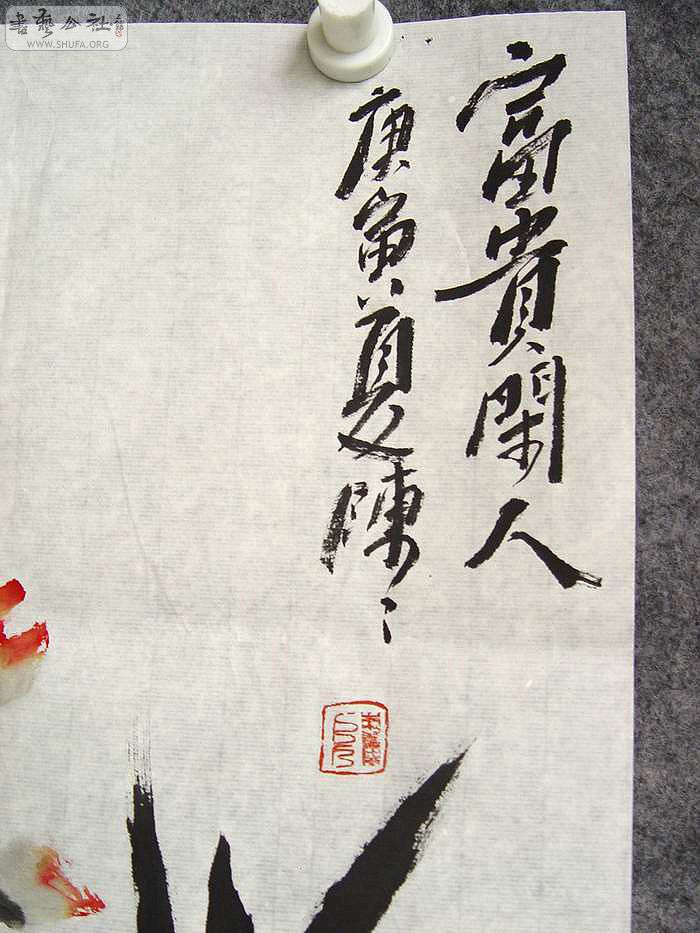 富貴閑人
庚寅夏陳〻
書藝公社
WWW.SHUFA.ORG